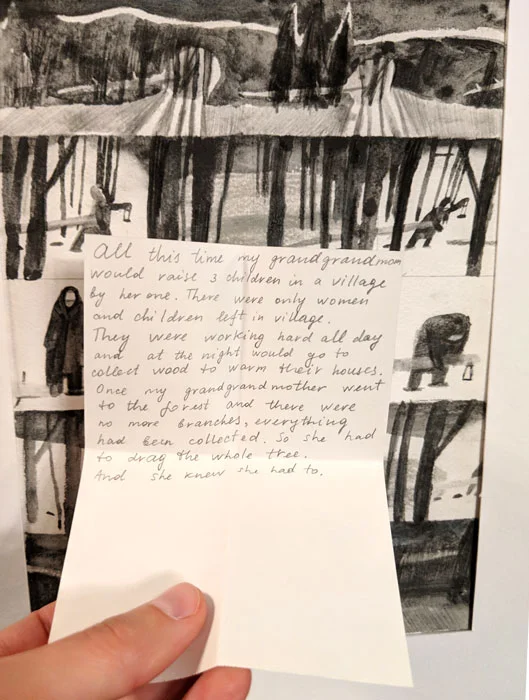 All this time my grandgrandmom
would raise 3 children in a village
by her one. There were only women
and children left in village.
They were working hard all day
and at the night would go to
collect wood to warm their houses.
Once my grandgrandmother went
to the forest and there were
no more branches, everything
had been collected. So she had
to drag the whole tree.
And she knew she had to.